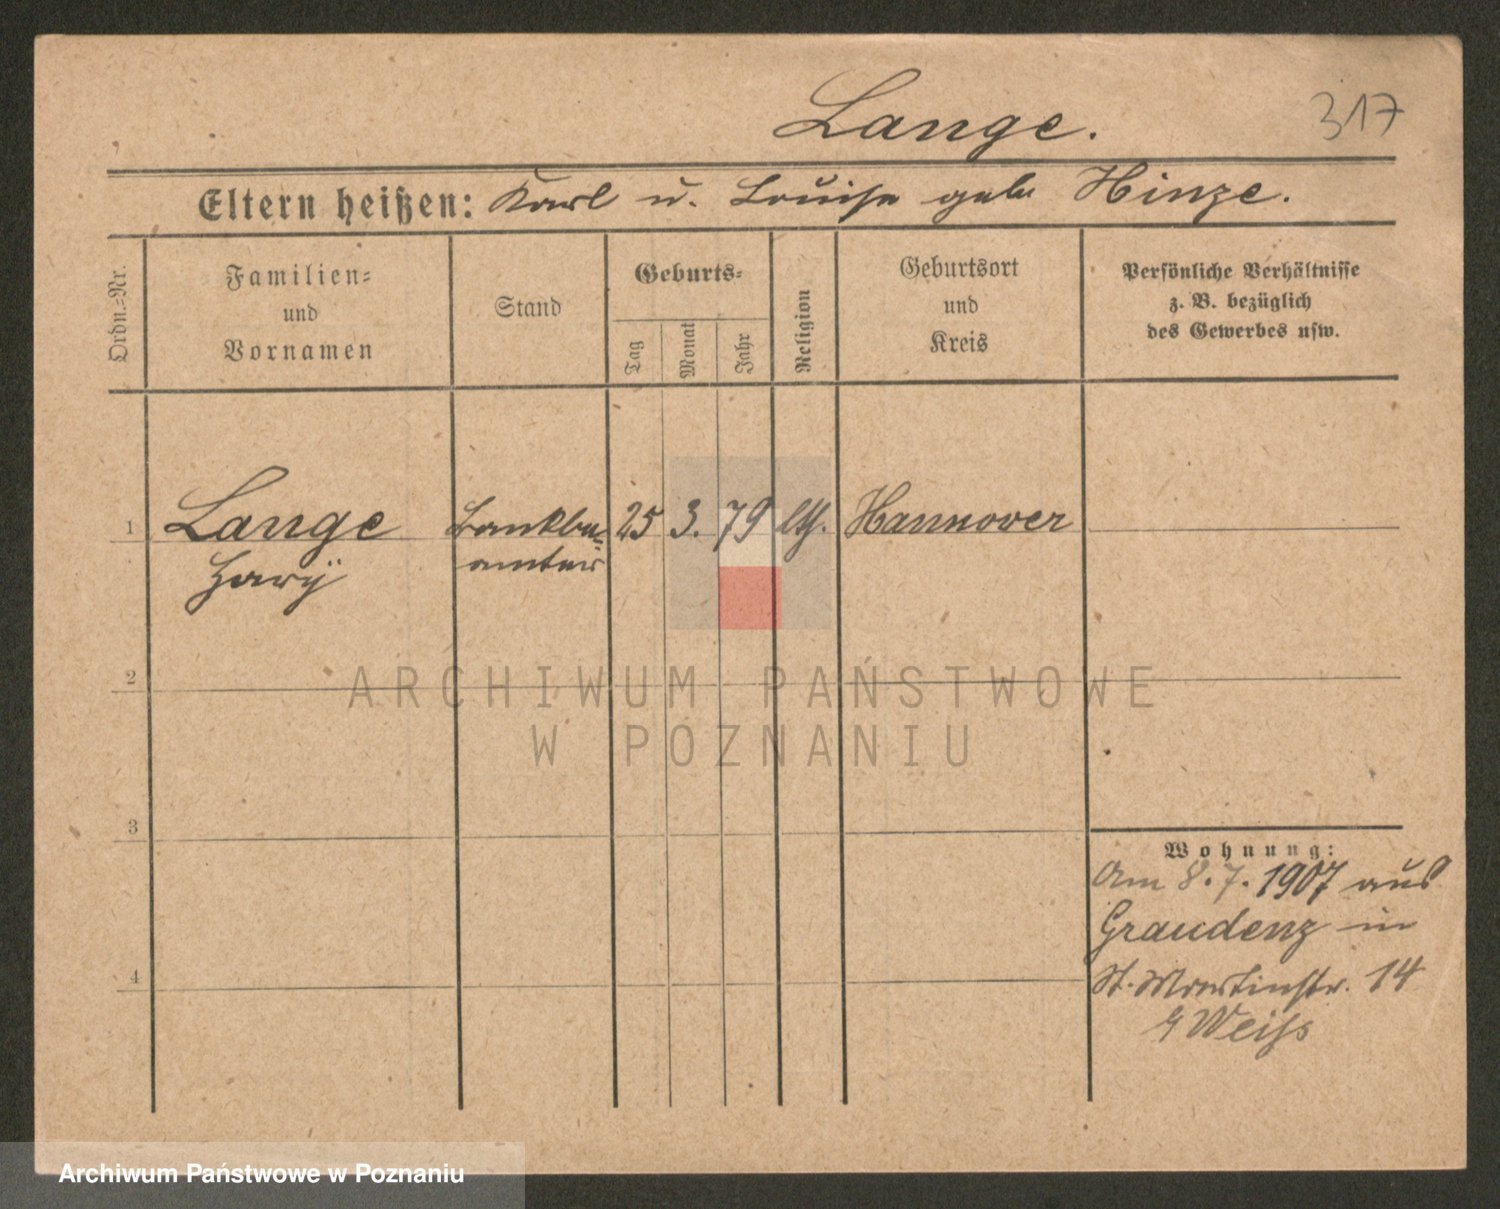 Lange.
317
Eltern heißen: Karl u. Louise geb. Hinze.
Ordn.=Nr.
Familien=
und
Vornamen
Stand
Geburts=
Tag
Monat
Jahr
Religion
Geburtsort
und
Kreis
Persönliche Verhältnisse
z. B. bezüglich
des Gewerbes usw.
1 Lange Bankbe= 25 3. 79 Hannover
Harÿ amter
2
3
4
Wohnung:
Am 8.7.1907 aus
Graudenz in
St. Martinstr. 14
Weiss
ARCHIWUM PAŃSTWOWE
W POZNANIU
Archiwum Państwowe w Poznaniu